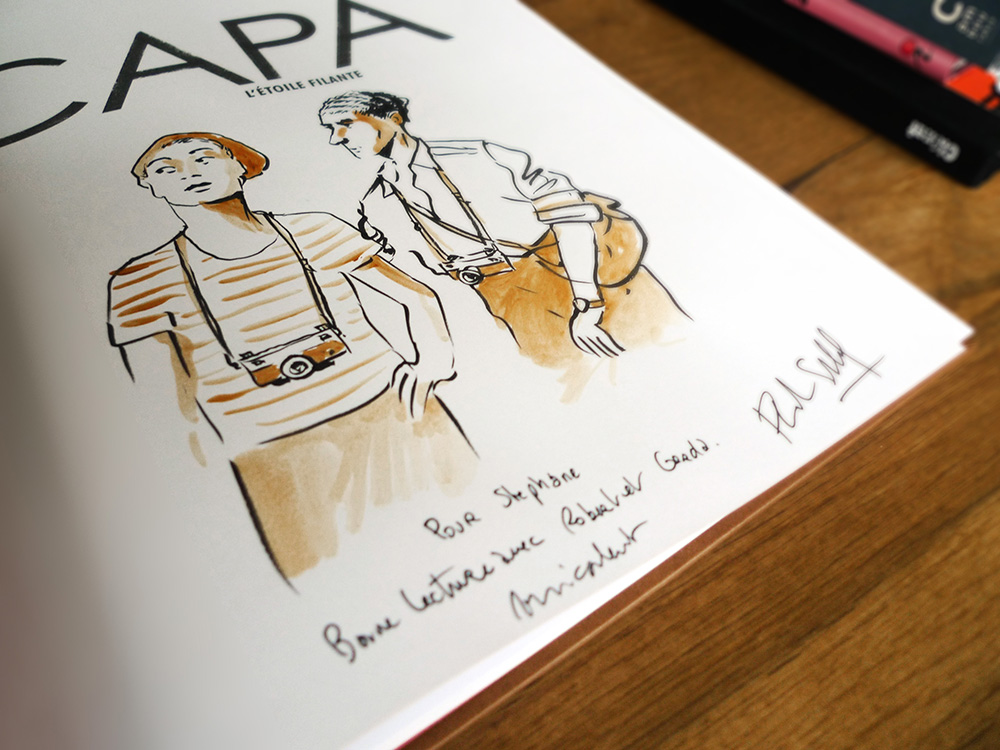 CAPA
L'ÉTOILE FILANTE
Pour Stephane
Bonne lecture avec Robert et Gerda.
Amicalement